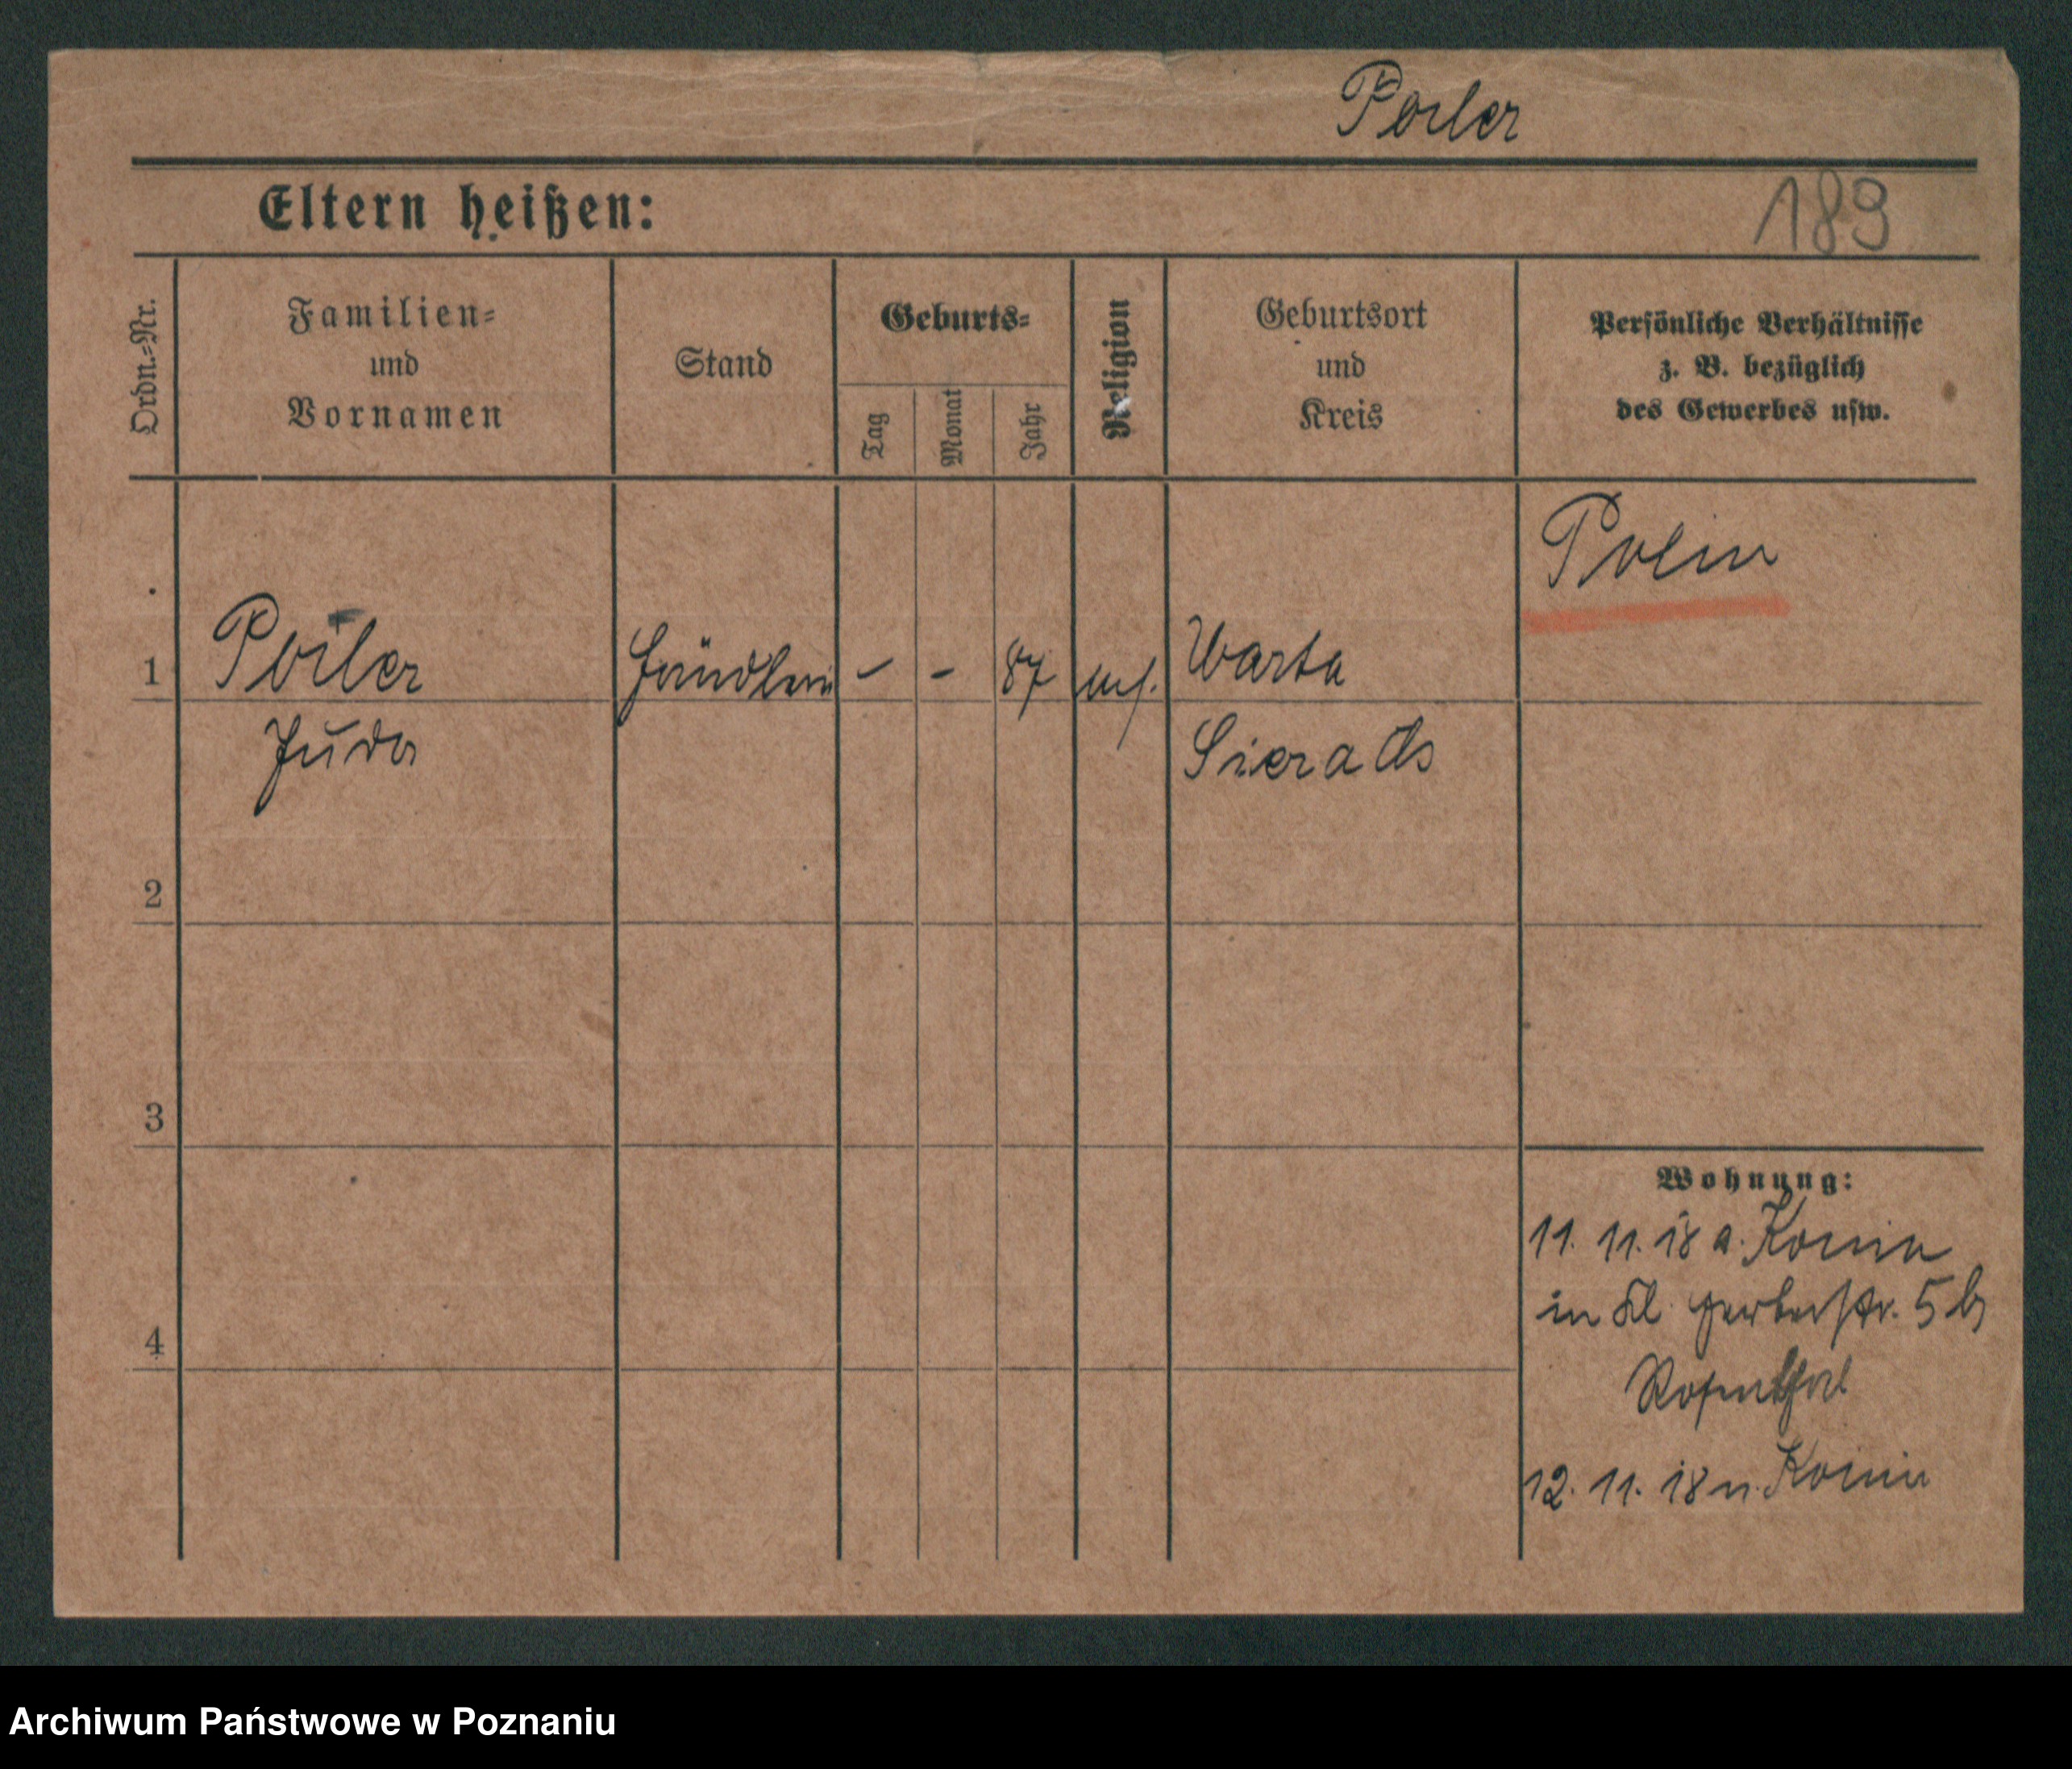 Poiler
Eltern heißen:
189
Ordn.=Nr.
Familien=
und
Vornamen
Stand
Geburts=
Tag
Monat
Jahr
Religion
Geburtsort
und
Kreis
Persönliche Verhältnisse
z. B. bezüglich
des Gewerbes usw.
Polin
1
Poiler
Händlerin
-
-
87
Warta
Juda
Sierads
2
3
4
Wohnung:
11. 11. 18 a. Konin
in Kl. Gerberstr. 5 b
Rosenthal
12. 11. 18 n. Konin
Archiwum Państwowe w Poznaniu